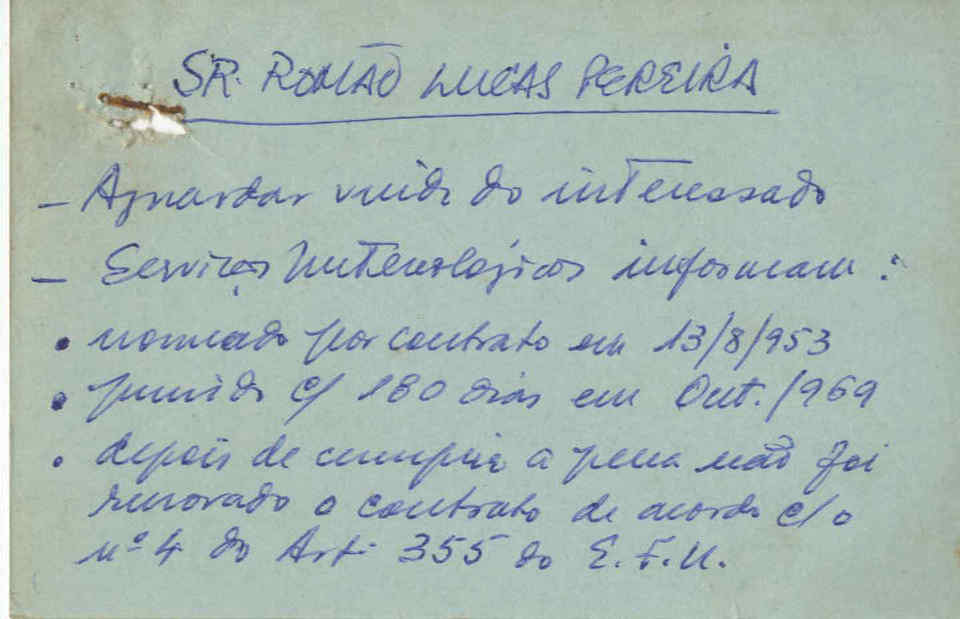 SR. ROMÃO LUCAS PEREIRA
- Aguardar vinda do interessado
- Serviços Meteorológicos informam :
• nomeado por contrato em 13/8/953
• punido c/ 180 dias em Out./969
• depois de cumprir a pena não foi
renovado o contrato de acordo c/ o
nº 4 do Artº 355 do E.F.U.